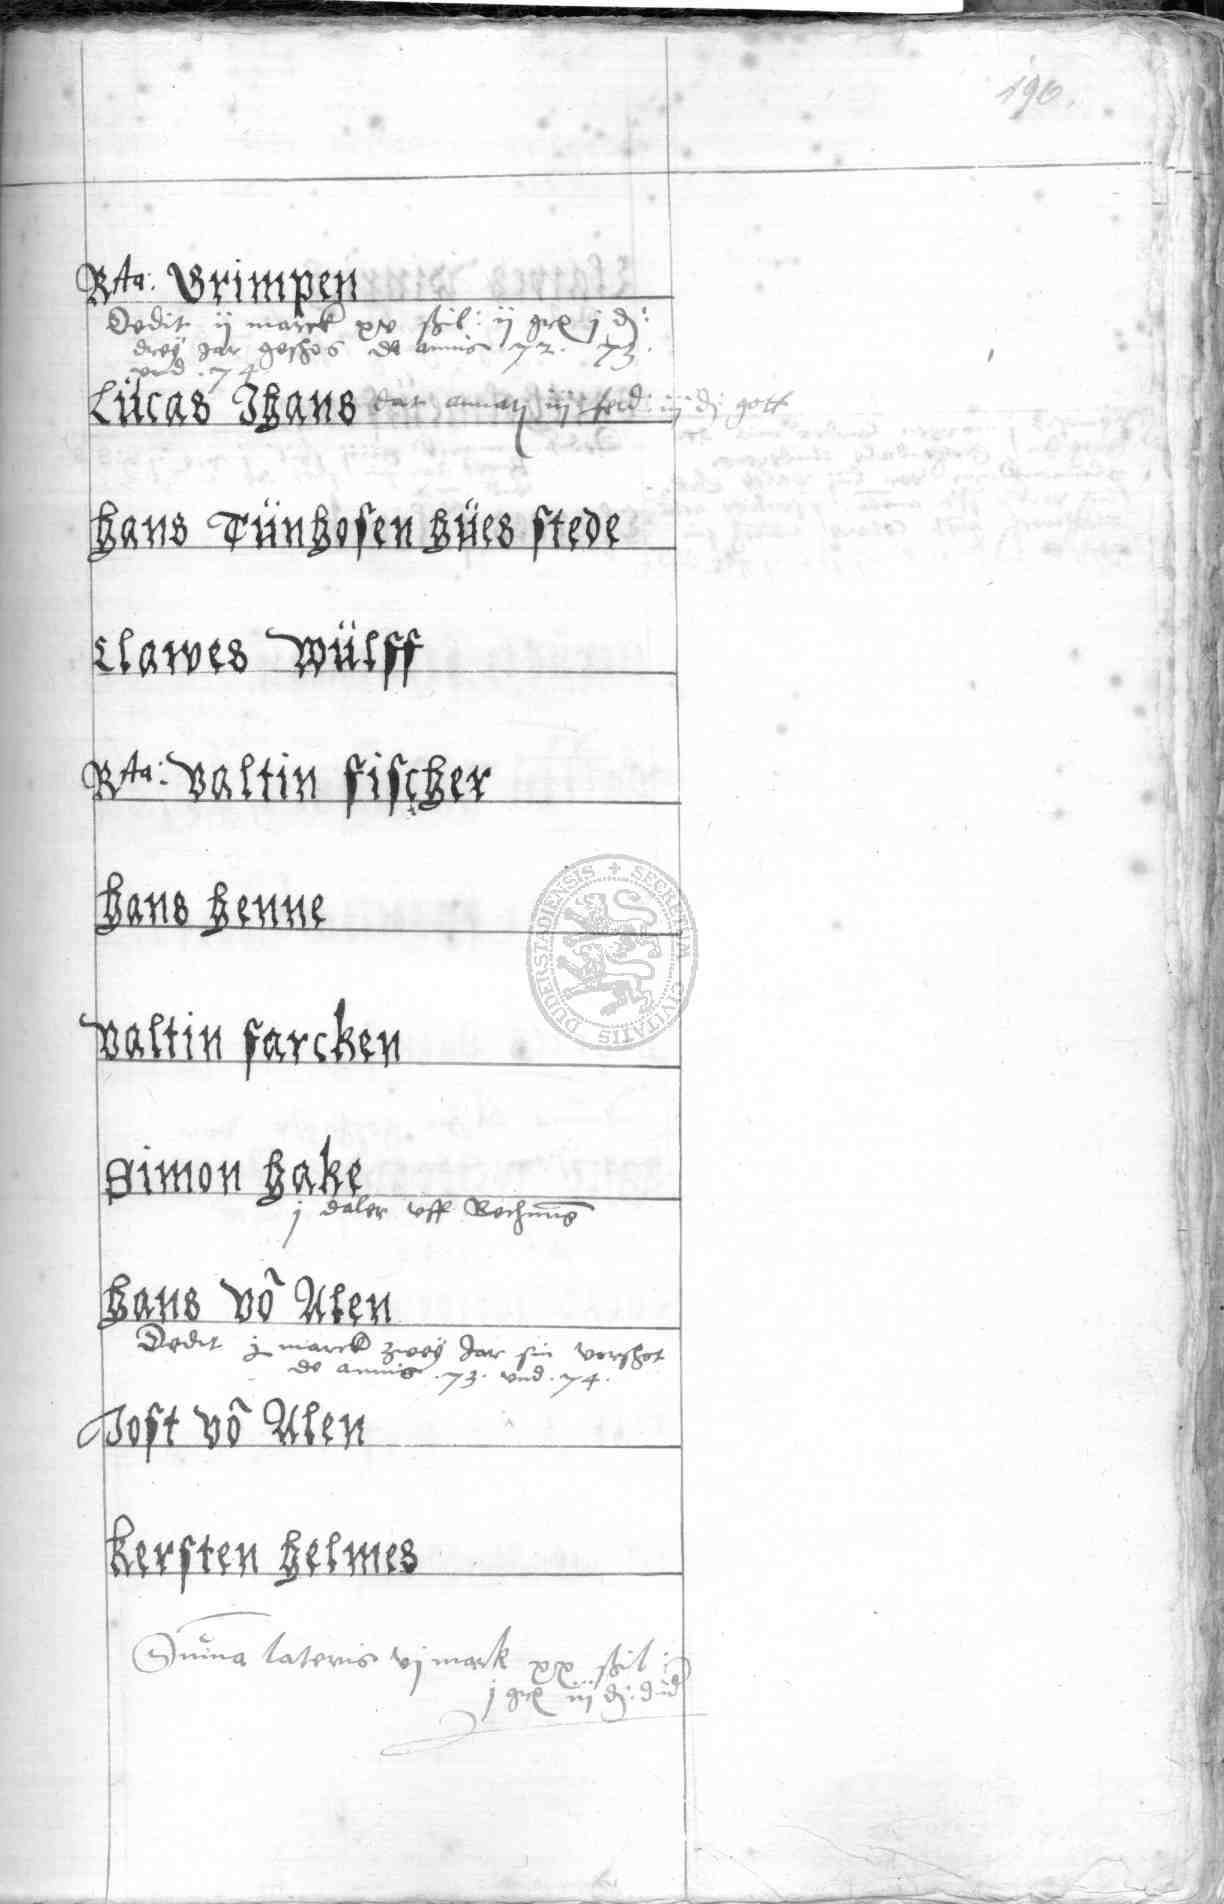 190.
Rta: Grimpen
Dedit ij marck xv shil: ij grx j d:
drey Jar geshos de annis 72. 73.
vnd .74.
Lücas Ihans dat annatj iij ferd: iij d gott
Hans Tünhosen hües stede
Clawes Wülff
Rta: Valtin fischer
Hans Henne
Valtin farcken
Simon Hake
j daler vff Rechnung
Hans vō Alen
Dedit j marck zwey Jar sin vorshot
de annis .73. vnd .74.
Jost vō Alen
Kersten Helmes
Suma lateris vj mark xx shil:
j grx iij d: dud
SECRETUM CIVITATIS DUDERSTADIENSIS